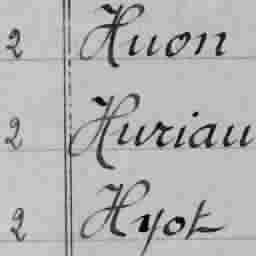 2 Huon
2 Huriau
2 Hyot